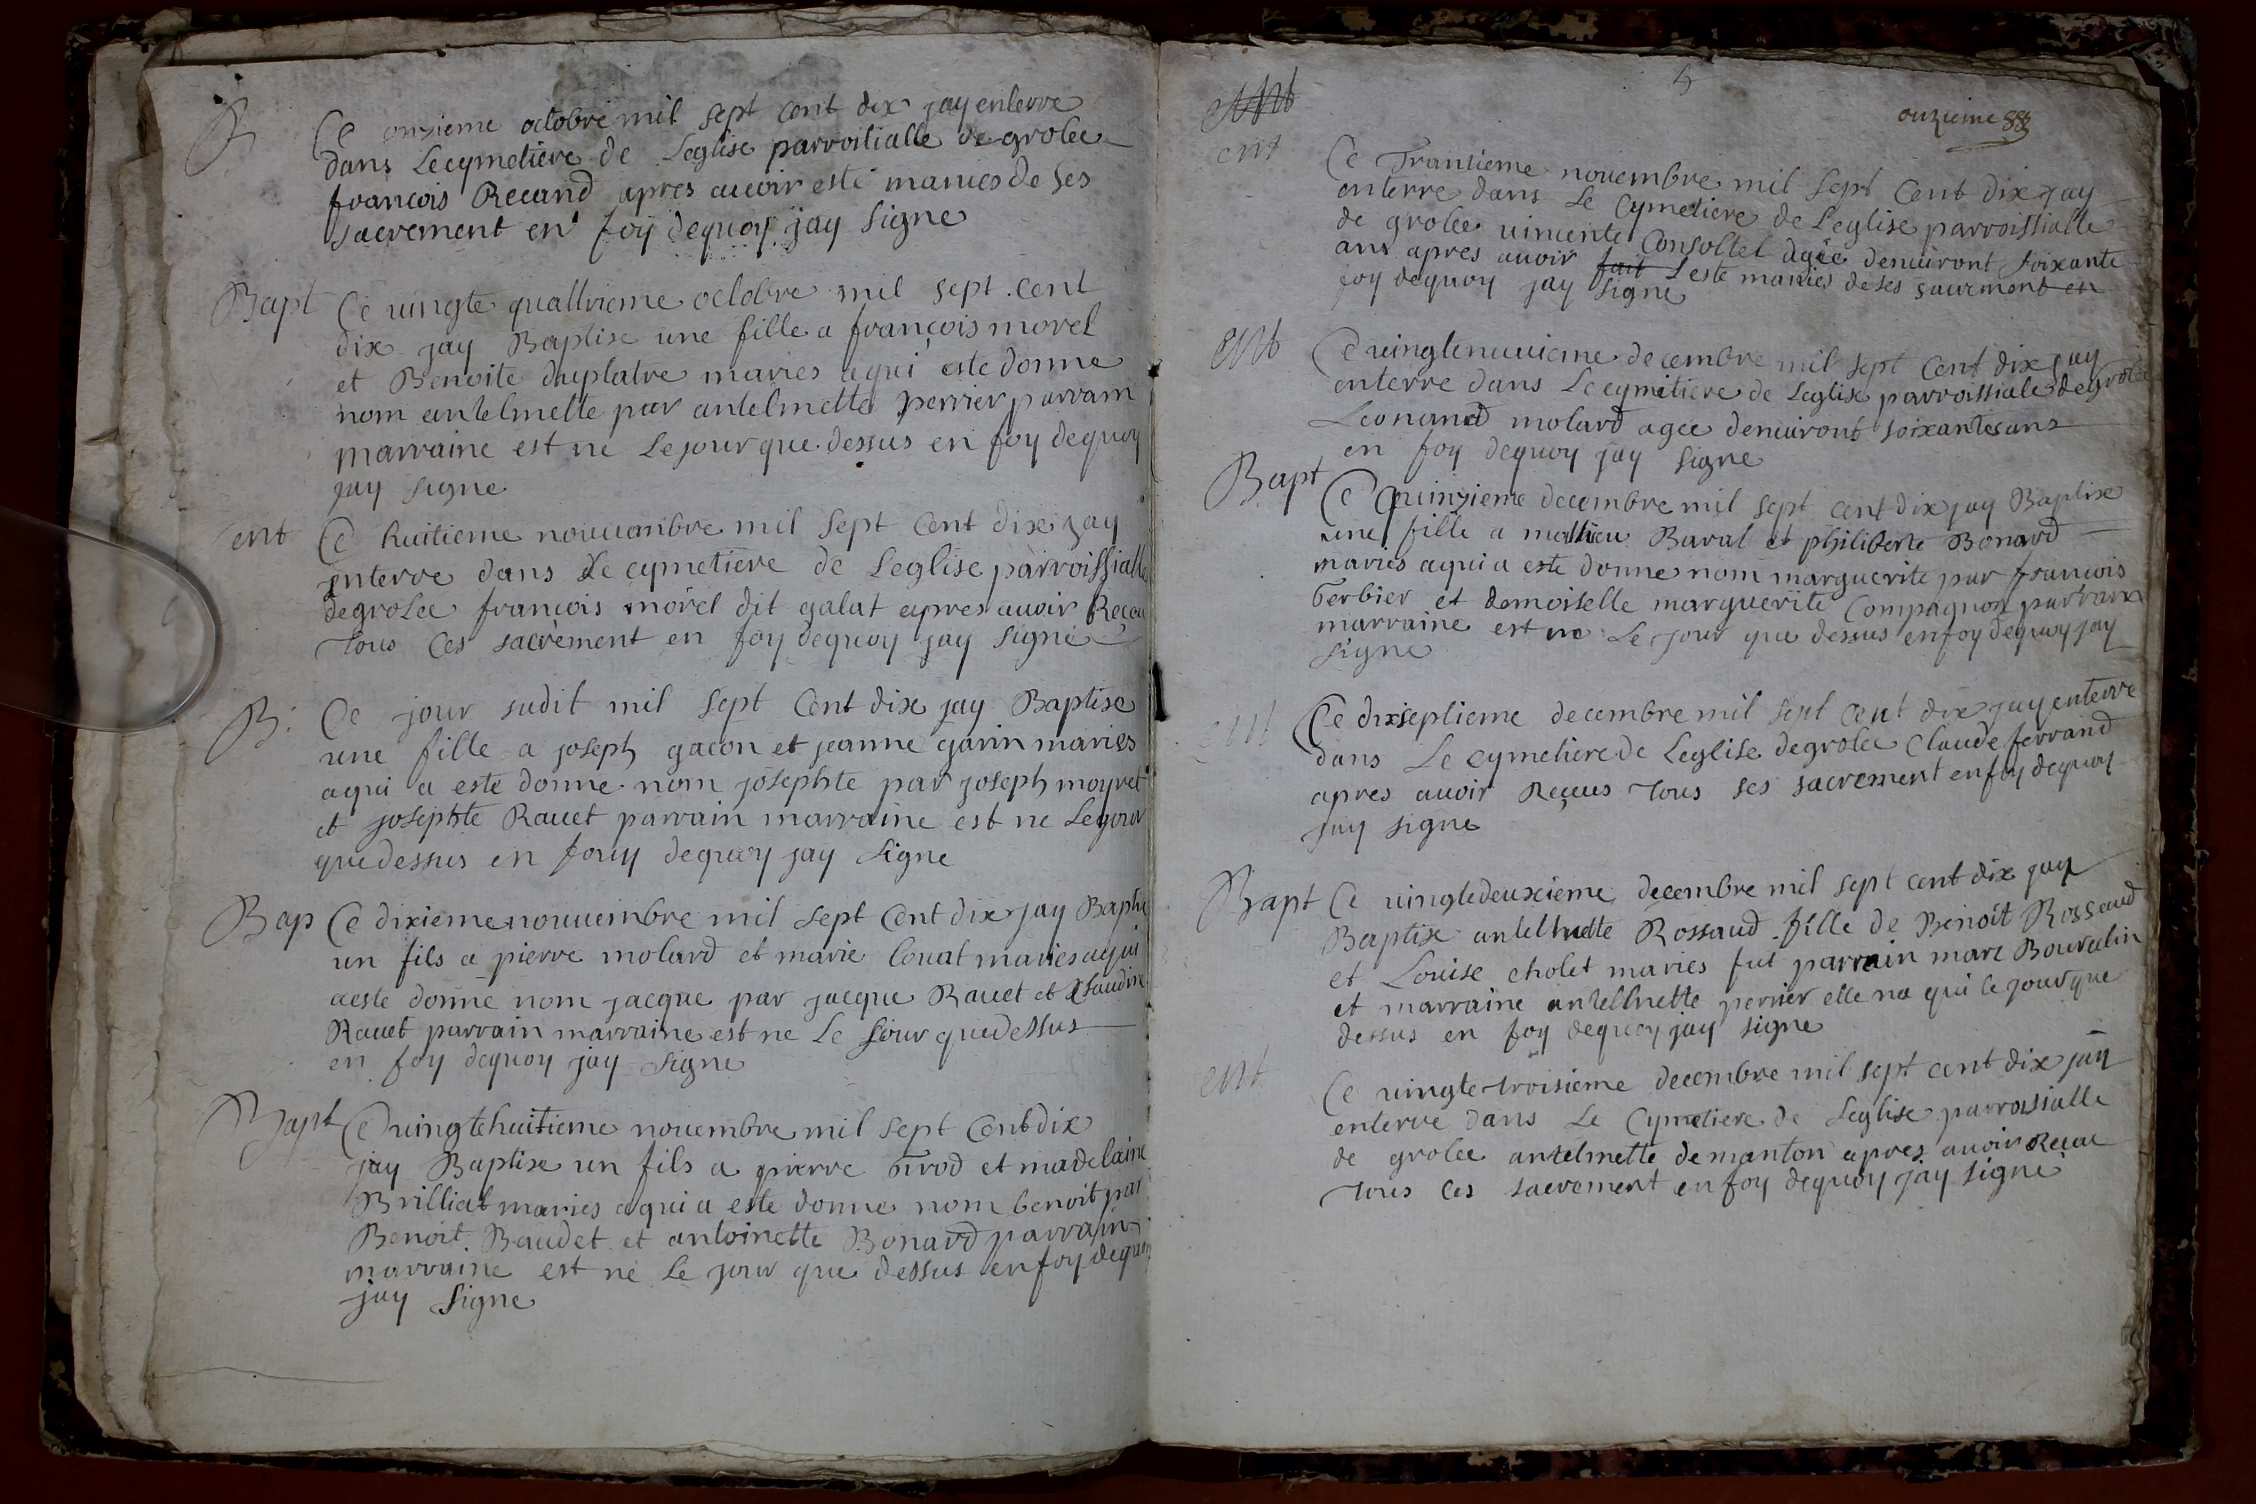 B
Ce onzieme octobre mil sept cent dix jay enterre
dans Le cymetiere de Leglise parroitialle de grolee
françois Recand apres avoir esté manies de ses
sacrement en foy dequoy jay signe
Bapt
Ce uingte quattrieme octobre mil sept cent
dix jay Baptise une fille a françois morel
et Benoite duplatre maries aqui este donne
nom antelmette par antelmette perrier parrain
marraine est ne Le jour que dessus en foy dequoy
jay signe
ent
Ce huitieme nouuembre mil sept cent dix jay
enterre dans Le cymetiere de Leglise parroissialle
degrolee françois morel dit galat apres auoir Receu
tous ces sacrement en foy dequoy jay signe
B.
Ce jour sudit mil sept cent dix jay Baptise
une fille a joseph gacon et jeanne garin maries
aqui a este donne nom josephte par joseph moyret
et josephte Rauet parrain marraine est ne Le jour
que dessus en fouy dequoy jay signe
Bap
Ce dixieme nouuembre mil sept cent dix jay Baptise
un fils a pierre molard et marie Couat maries aqui
aeste donne nom jacque par jacque Rauet et Claudine
Rauet parrain marraine est ne Le jour que dessus
en foy dequoy jay signe
Bapt
Ce uingtehuitieme nouembre mil sept cent dix
jay Baptise un fils a pierre Trod et madelaine
Brilliat maries aqui a este donne nom benoit par
Benoit Baudet et antoinette Bonard parrain
marraine est ne Le jour que dessus en foy dequoy
jay signe
5
onzieme
ent
ent
Ce Trantieme nouembre mil sept cent dix jay
enterre dans Le Cymetiere de Leglise parroissialle
de grolee uincente Consollet agée denuiront soixante
ans apres auoir fait este manies de ses saurment en
foy dequoy jay signe
ent
Ce uingtenuuieme decembre mil sept cent dix jay
enterre dans Le cymitiere de Leglise parroissiale degrolee
Leonard molard agee denuiront soixantes ans
en foy dequoy jay signe
Bapt
Ce quinzieme decembre mil sept cent dix jay Baptise
une fille a mathieu Baral et philiberte Bonard
maries aqui a este donne nom marguerite par francois
berbier et demoiselle marguerite Compagnon parrain
marraine est ne Le jour que dessus en foy dequoy jay
signe
ent
Ce dixseptieme decembre mil sept cent dix jay enterre
dans Le cymetiere de Leglise degrolee Claude ferrand
apres auoir Reçus tous ses sacrement en foy dequoy
jay signe
Bapt
Ce uingtedeuxieme decembre mil sept cent dix jay
Baptise antelmette Rossaud fille de Benoit Rossaud
et Louise cholet maries fut parrain marc Bourdin
et marraine antelmette perrier elle na qui le jour que
dessus en foy dequoy jay signe
ent
Ce uingte troisieme decembre mil sept cent dix jay
enterre dans Le Cymetiere de Leglise parroisialle
de grolee antelmette demanton apres auoir Receu
tous ces sacrement en foy dequoy jay signe